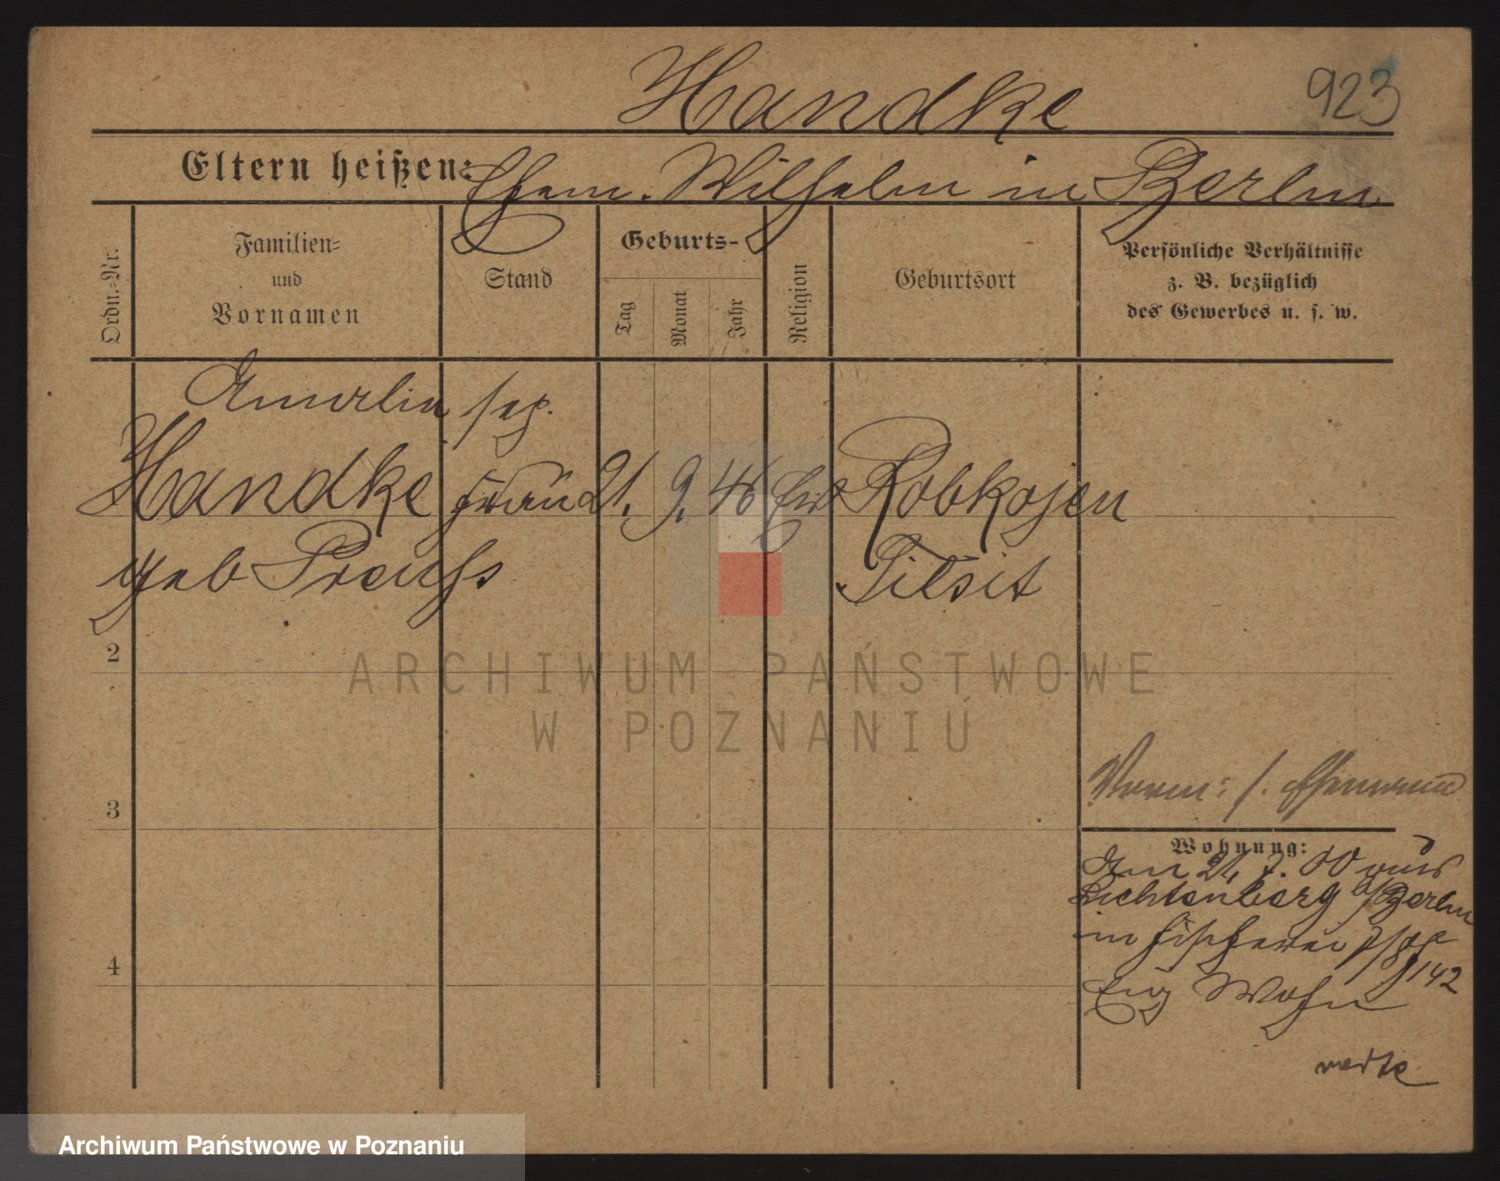 Handke 923
Eltern heißen: Ehem. Wilhelm in Berlin
Ordn.-Nr.
Familien-
und
Vornamen
Stand
Geburts-
Tag
Monat
Jahr
Religion
Geburtsort
Persönliche Verhältnisse
z. B. bezüglich
des Gewerbes u. s. w.
Amalie sep.
Handke Frau 21. 9. 46 Ev Robkojen
geb Preuß Tilsit
2
ARCHIWUM PAŃSTWOWE
W POZNANIU
3
Wohnung:
Am 21. 7. 00 aus
Lichtenberg b/Berlin
in Fischerei
142
4
Eig Wohn
Archiwum Państwowe w Poznaniu